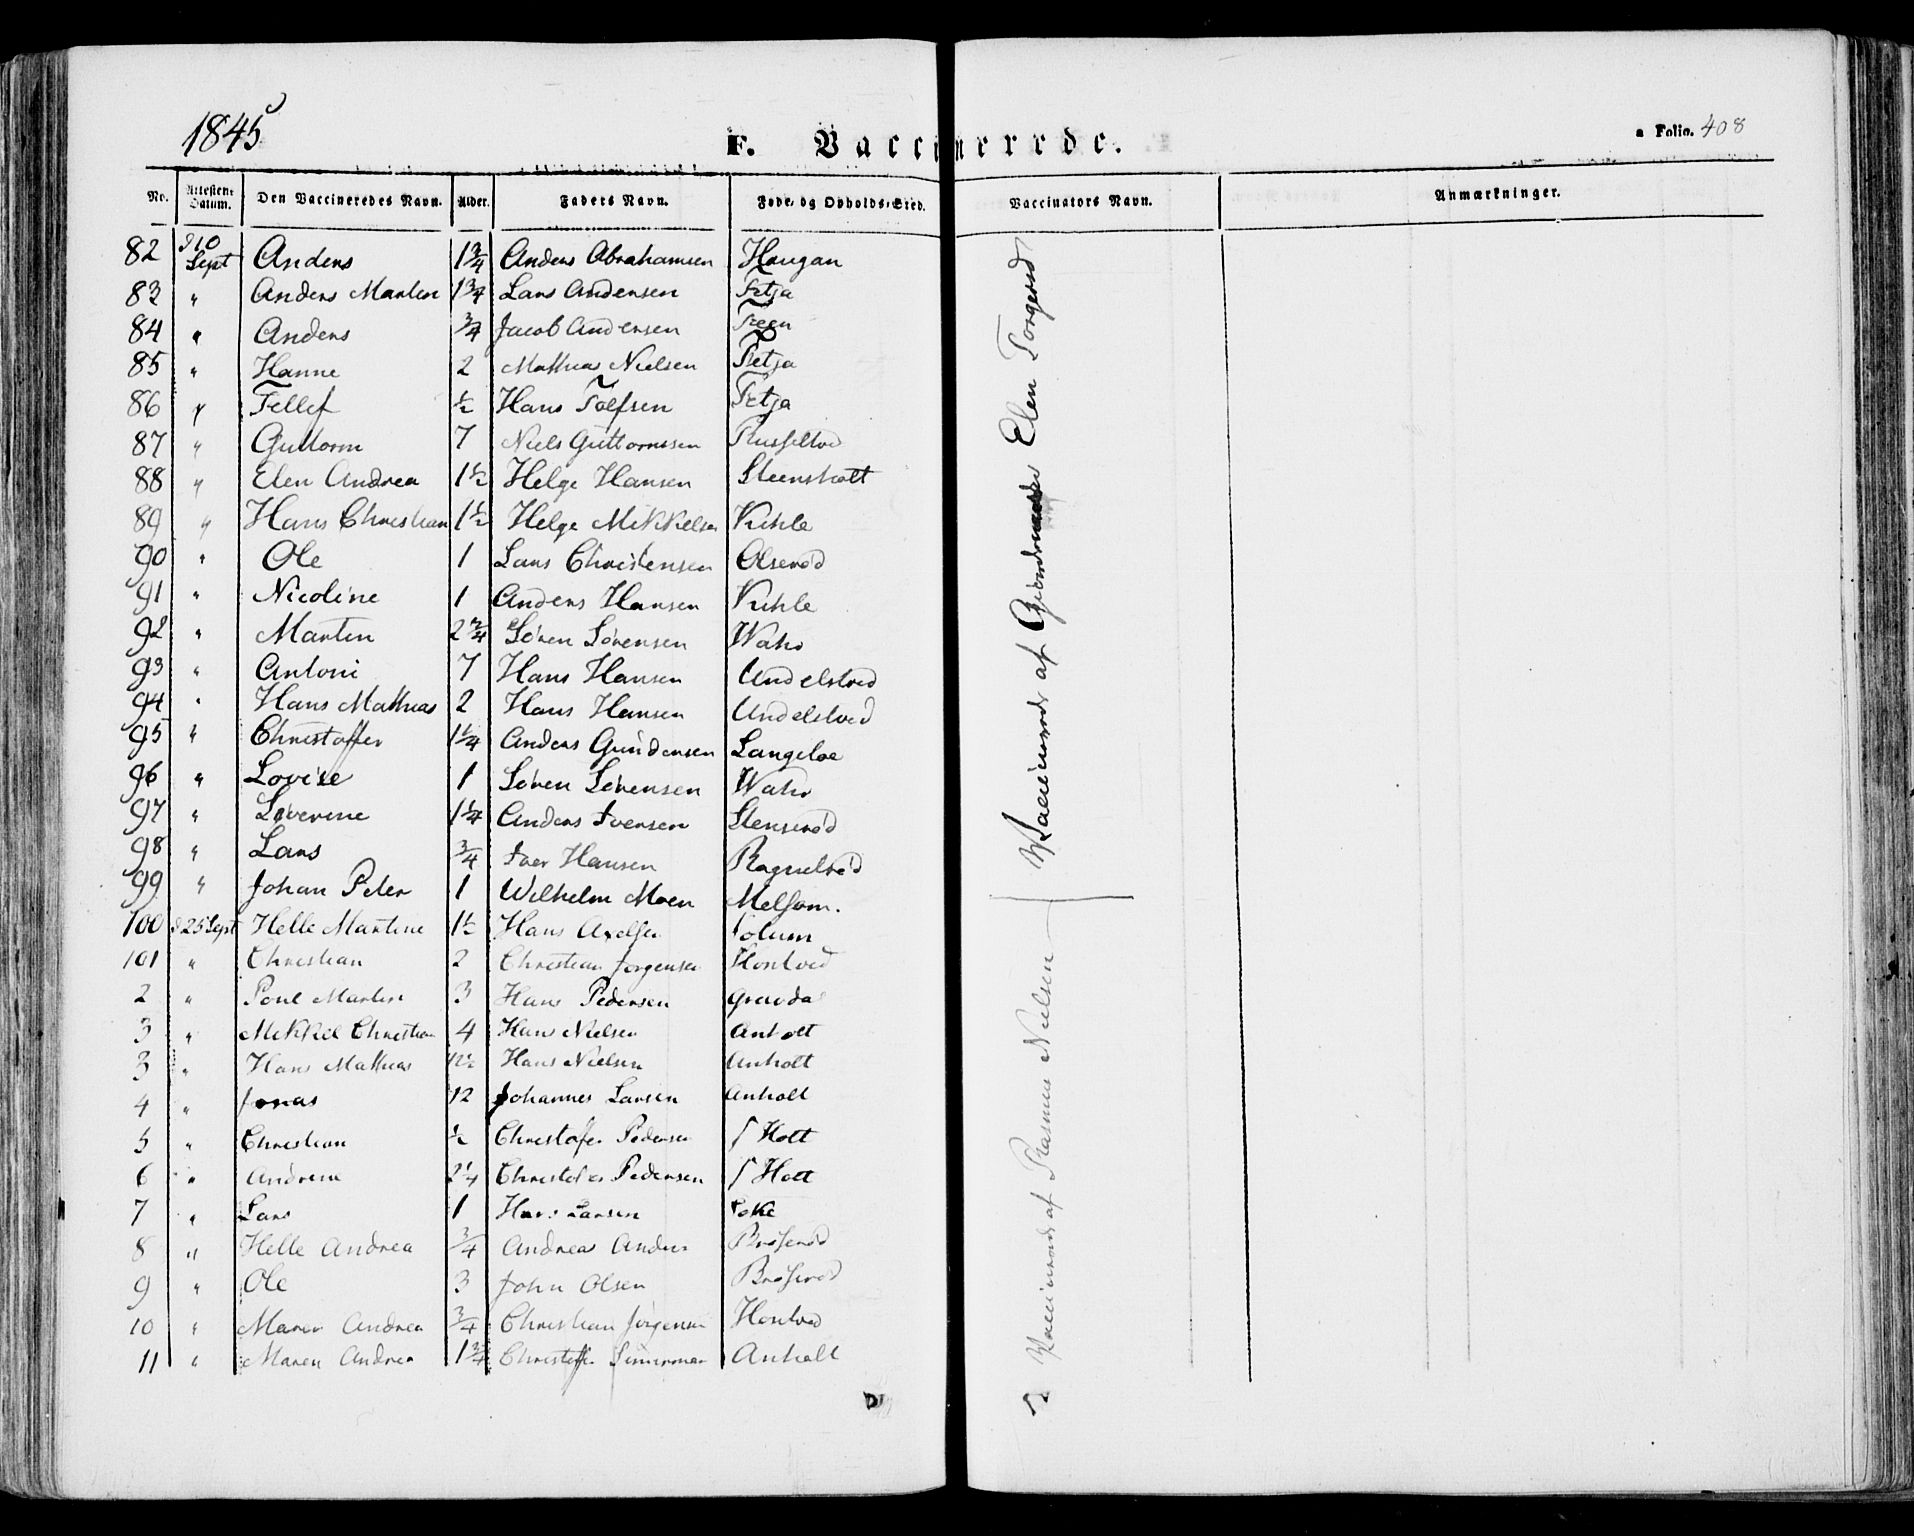 1845
F. Vaccinerede.
a Folio. 408
No. Attestens Datum. Den Vaccineredes Navn. Alder. Faders Navn. Føde- og Opholds-Sted. Vaccinators Navn. Anmærkninger.
82 d 10 Sept Anders 1 3/4 Anders Abrahamsen Haugan
83 " Anders Martin 1 3/4 Lars Andersen Fetja
84 " Anders 3/4 Jacob Andersen Freen
85 " Hanne 2 Mathias Nielsen Fetja
86 " Tellef 1/2 Hans Tolfsen Fetja
87 " Guttorm 7 Niels Guttormsen
88 " Elen Andrea 1 1/2 Helge Hansen Steensholt
89 " Hans Christian 1 1/2 Helge Mikkelsen Kihle
90 " Ole 1 Lars Christensen Olserød
91 " Nicoline 1 Anders Hansen Kihle
92 " Martin 2 3/4 Søren Sørensen
93 " Antoni 7 Hans Hansen Undelstvød
94 " Hans Mathias 2 Hans Hansen Undelstvød
95 " Christoffer 1 1/4 Anders Gundersen Langeløe
96 " Lovise 1 Søren Sørensen
97 " Severine 1 1/4 Anders Iversen Stenserød
98 " Lars 3/4 Iver Hansen Ragnelrød
99 " Johan Peter 1 Wilhelm Moen Melsom.
100 d 25 Sept Helle Martine 1 1/2 Hans Axelsen Solum
101 " Christian 2 Christian Jørgensen Hontved
2 " Poul Martin 3 Hans Pedersen Gravda
3 " Mikkel Christian 4 Hans Nielsen Anholt
3 " Hans Mathias Hans Nielsen Anholt
4 " Jonas 12 Johannes Larsen Anholt
5 " Christian 1/2 Christofer Pedersen Holt
6 " Andrine 2 1/4 Christofer Pedersen Holt
7 " Lars 1 Hans Larsen
8 " Helle Andrea 3/4 Andreas Anders Brøserød
9 " Ole 3 John Olsen Brøserød
10 " Maren Andrea 3/4 Christian Jørgensen Hontved
11 " Maren Andrea 1 3/4 Christoffer Anholt
Vaccinerede af Elen Torgersd
Vaccinerede af Rasmus Nielsen